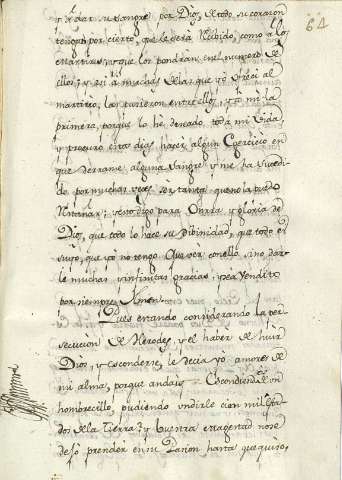 64
dar su sangre por Dios, de todo su corazon
tengo por cierto, que le será Recibido, como a los
Martires, y que los pondran en el numero de
ellos; y asi a muchas de las que yo vi en el
martirio, las tuvieron entre ellos, y a mi la
primera, porque lo he deseado toda mi vida,
y procuro estos dias hacer algun Exercicio en
que derrame alguna sangre y me ha sucedi-
do por muchas veces ser tanta que no la puedo
Restañar; y esto digo para onrra y gloria de
Dios, que todo lo hace su Divinidad, que todo es
suyo, que yo no tengo que ver con ello, sino dar-
le muchas infinitas gracias, sea Vendito
por siempre Amen.
Pues estando considerando la per-
secucion de Herodes, y el haber de huir
Dios, y esconderse, le decia yo, amores de
mi alma, porque andais Escondiendo
hombrecillo, pudiendo undirle con mil
dos de la Tierra? y quenta en
dejó prender en su Pasion hasta que quiso,